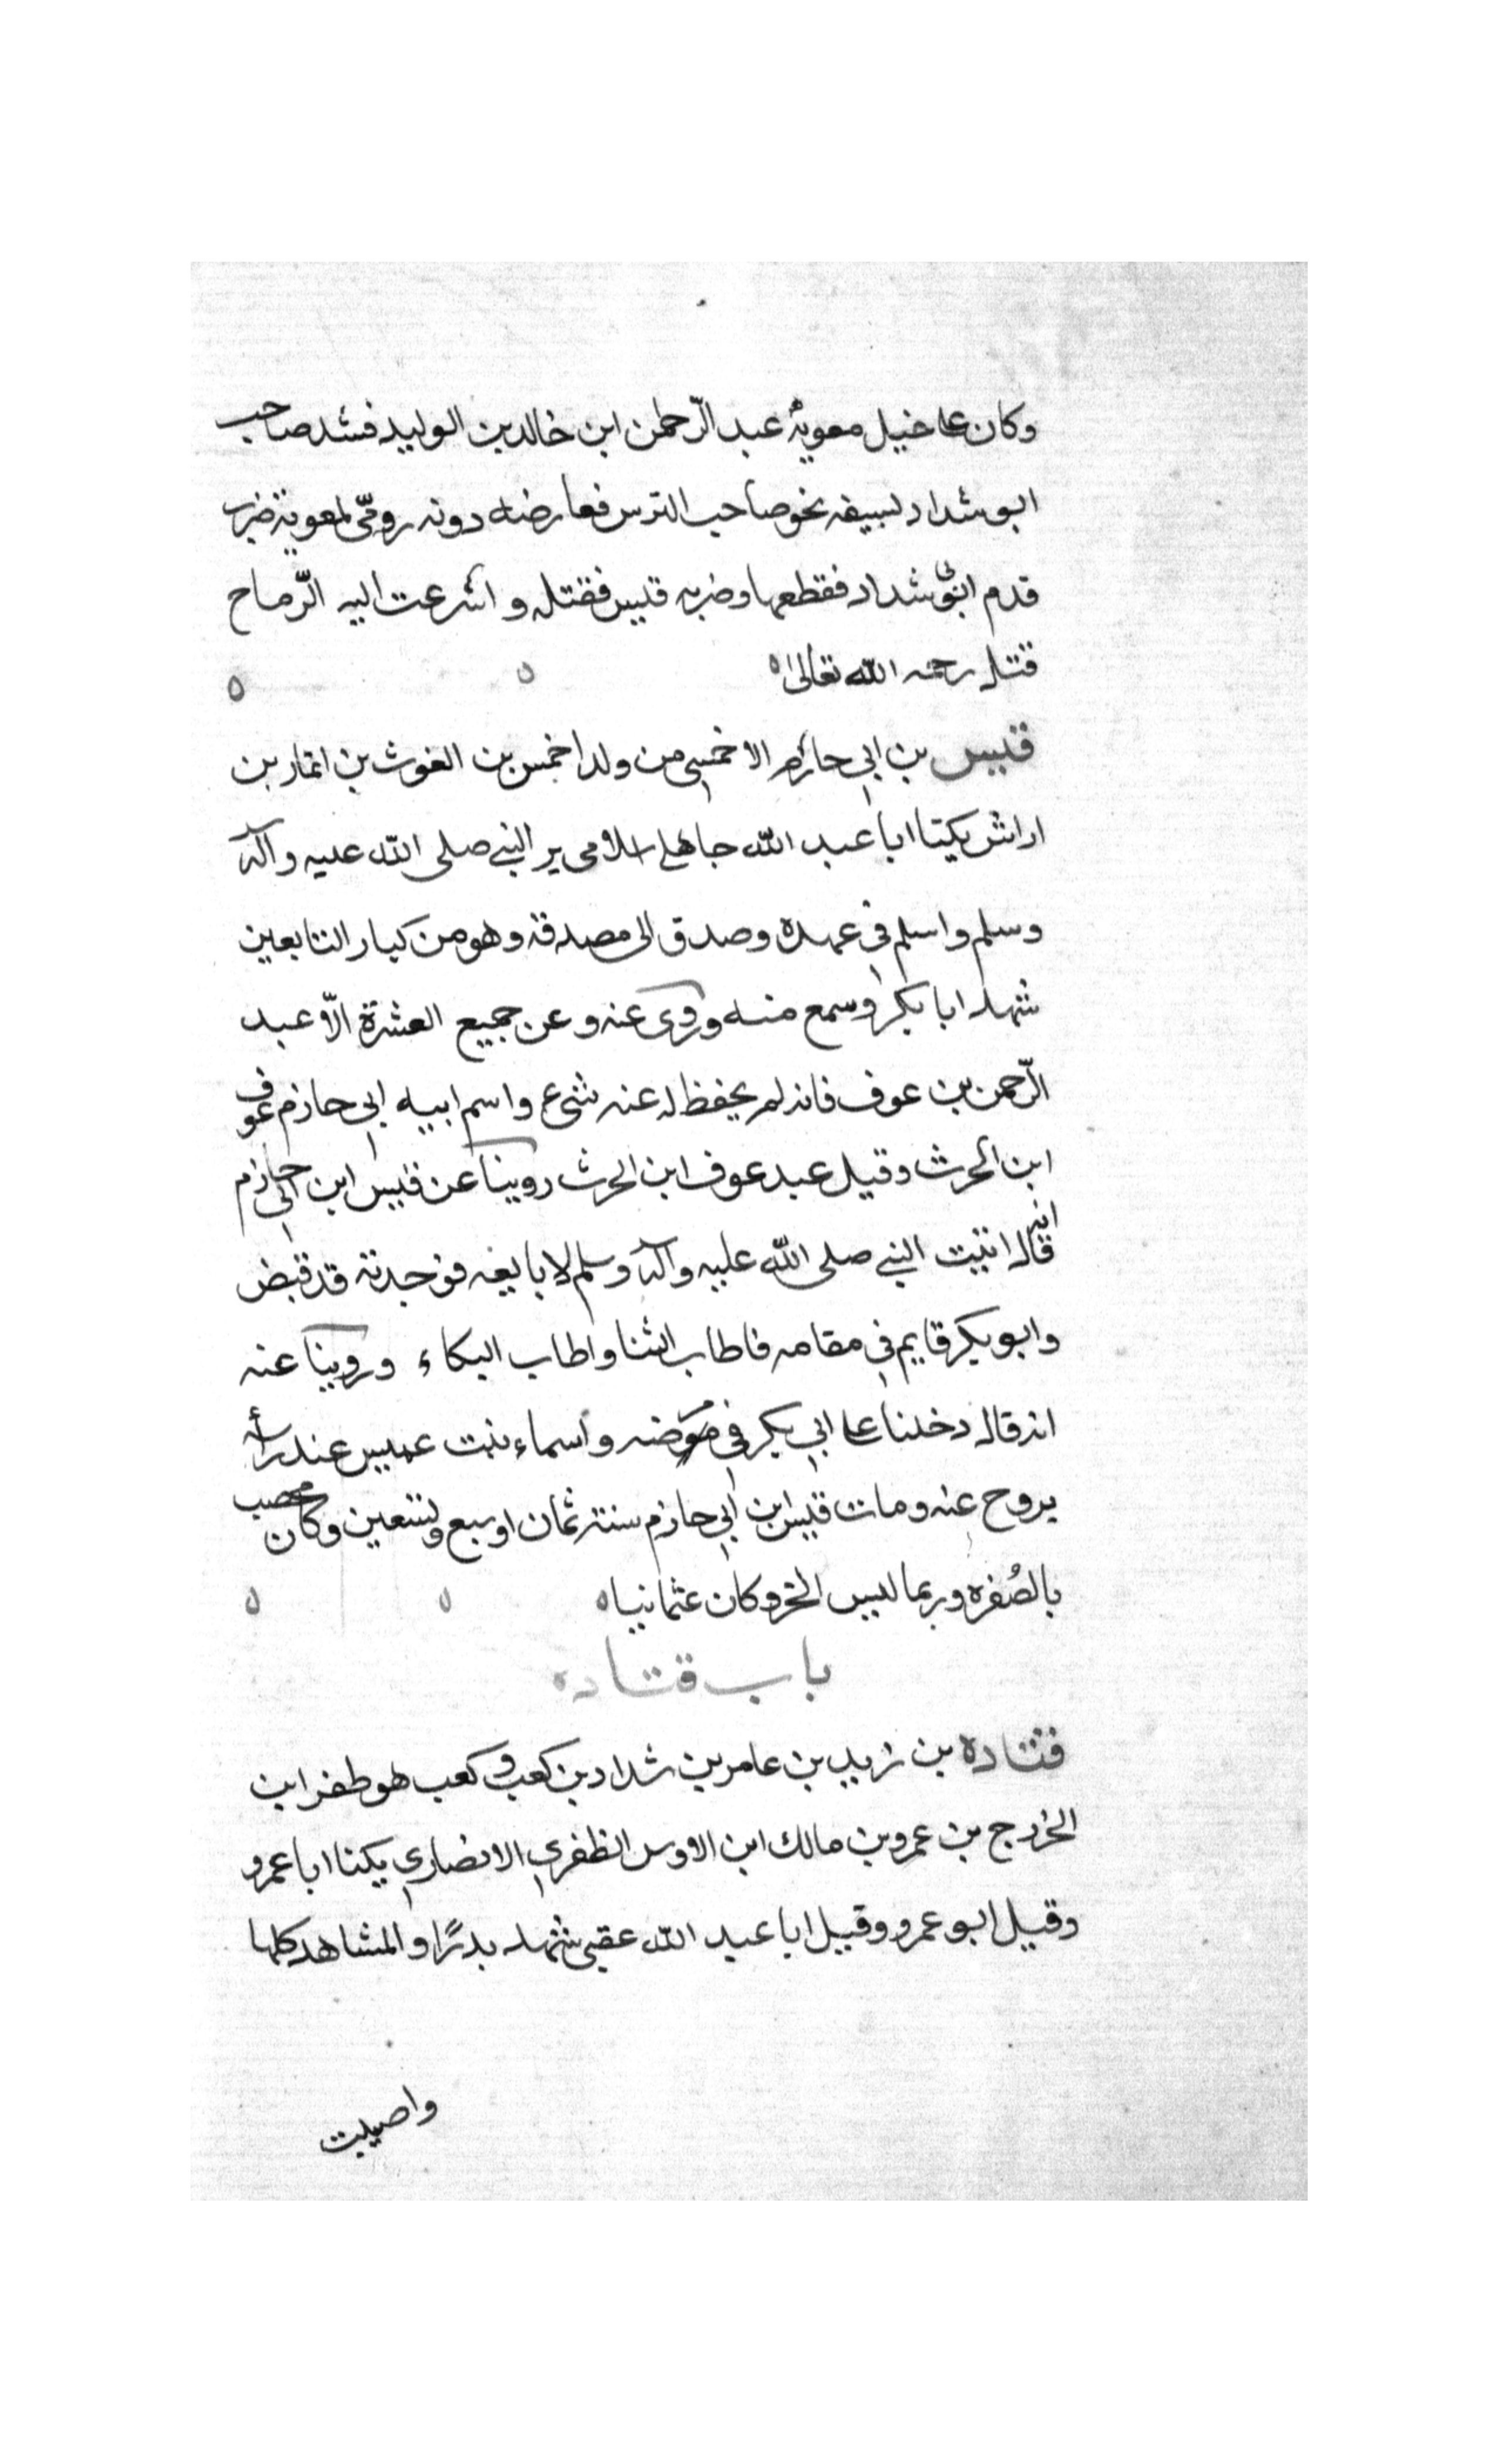 وكان علىا خيل معوية عبد الرّحمن ابن خالد بن الوليد فشد صاحب
ابو شداد لسيفه نحو صاحب الترس فعارضه دونه روميّ لمعوية ضرب
قدم ابى شداد فقطعها وضربه قيس فقتله و اشرعت اليه الرّماح
قتله رحمه الله تعالى ٥
قيس بن ابي حازم الاخمسي من ولد اخمس بن الغوث بن انمار بن
اراش يكنا ابا عبد الله جاهلى اسلامى ير النبي صلى الله عليه وآله
وسلم واسلم في عهده وصدق الى مصدقه وهو من كبار التابعين
شهد ابا بكر وسمع منه وروى عنه وعن جميع العشرة الاّ عبد
الرّحمن بن عوف فانه لم يحفظ له عنه شىء واسم ابيه ابي حازم عوف
ابن الحرث وقيل عبد عوف ابن الحرث روينا عن قيس ابن ابي حازم
انه قال اتيت النبي صلى الله عليه وآله وسلم لا بايعه فوجدته قد قبض
وابو بكر قايم في مقامه فاطاب الثنا واطاب البكاء وروينا عنه
انه قال دخلنا علىا ابي بكر في مرضه واسماء بنت عميس عند رأسه
يروح عنه ومات قيس ابن ابي حازم سنة ثمان او سبع وتسعين وكان يخصب
بالصُفره وربما لبس الخز وكان عثمانيا ٥
باب قتاده
قتاده بن زيد بن عامر بن شداد بن كعب و كعب هو طفر ابن
الخزرج بن عمرو بن مالك ابن الاوس الظفري الانصاري يكنا ابا عمرو
وقيل ابو عمرو وقيل ابا عبد الله عقبى شهد بدرًا والمشاهد كلها
واصيبت